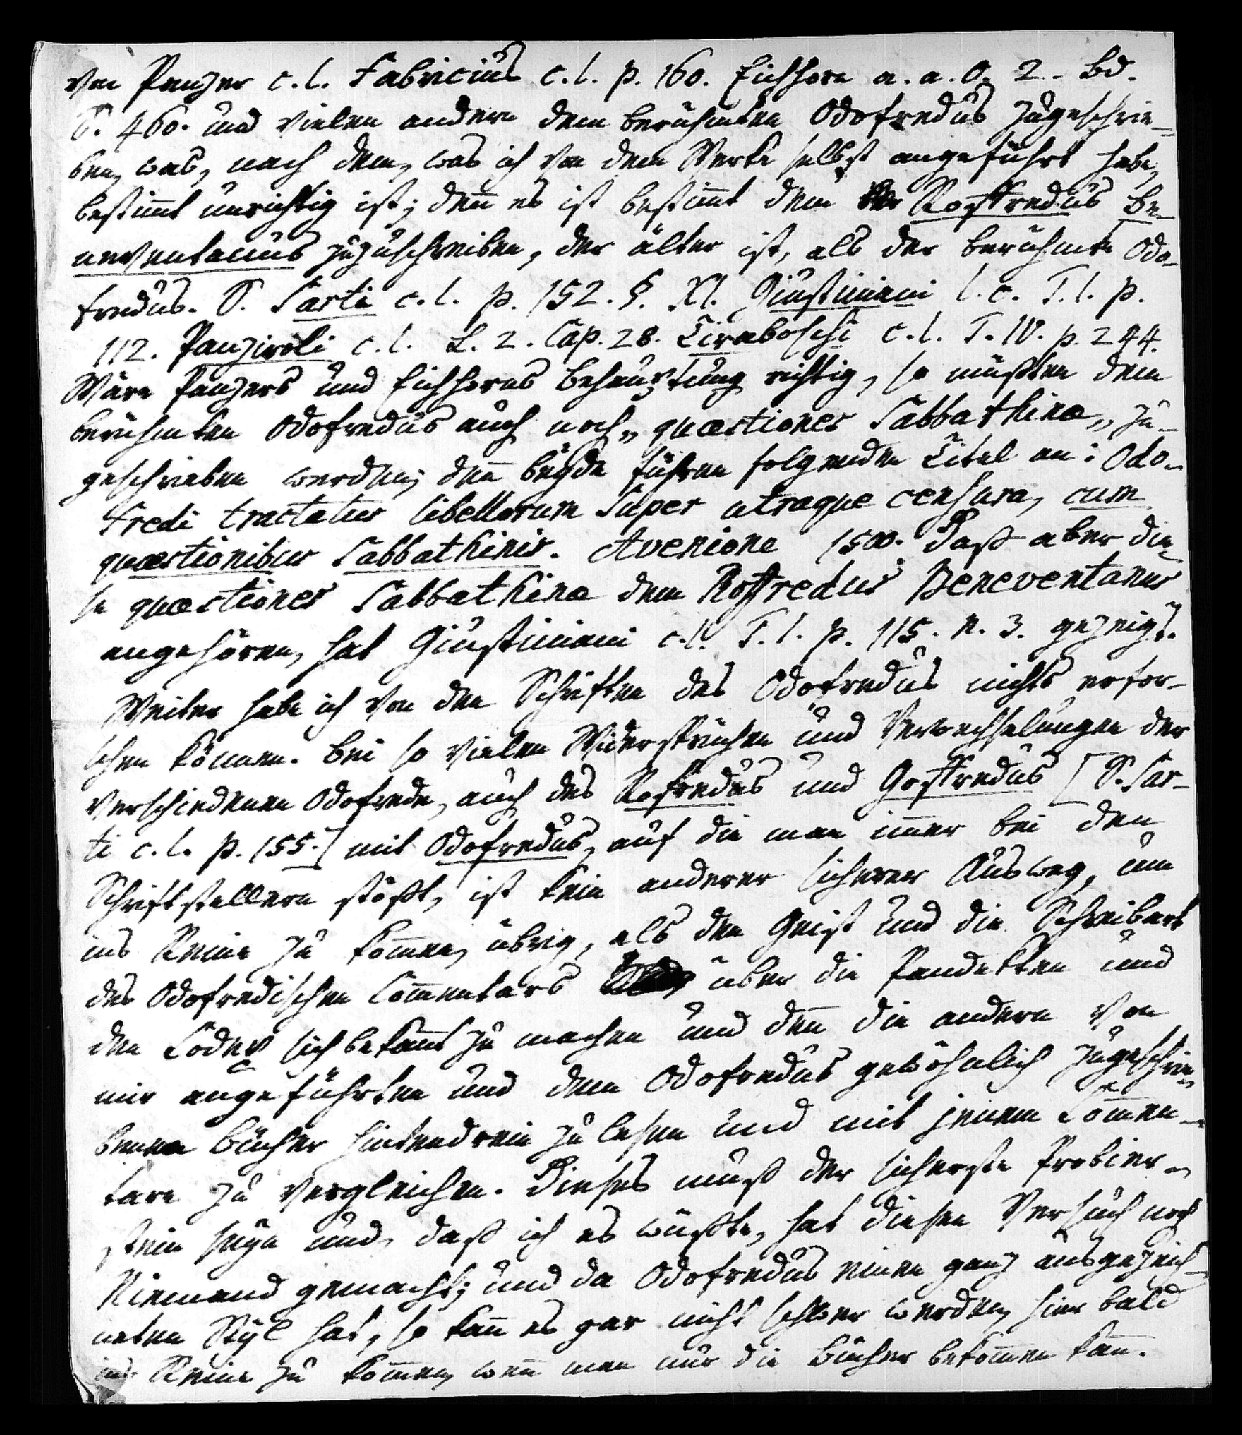 von Panzer c. l. Fabricius c. l. p. 160. Eichhorn a. a. O. 2. Bd.
S. 460. und vielen andern dem berühmten Odofredus zugeschrie-
ben, was, nach dem, was ich von dem Werke selbst angeführt habe,
bestim̅t unrichtig ist; den̅ es ist bestim̅t dem Roffredus Be-
neventanus zuzuschreiben, der älter ist, als der berühmte Odo-
fredus. S. Sarti c. l. p. 152. §. XI. Giustiniani l. c. T. I. p.
112. Panziroli c. l. L. 2. Cap. 28. Tiraboschi c. l. T. IV. p. 244.
Wäre Panzers und Eichhorns Behauptung richtig, so müßten dem
berühmten Odofredus auch noch „quæstiones Sabbathinæ„ zu-
geschrieben werden; den̅ beyde führen folgenden Titel an: Odo-
fredi tractatus libellorum super utraque censura, cum
quæstionibus Sabbathinis. Avenione 1500. Daß aber die-
se quæstiones Sabbathinæ dem Roffredus Beneventanus
angehören, hat Giustiniani c. l. T. I. p. 115. n. 3. gezeigt.
Weiter habe ich von den Schriften des Odofredus nichts erfor-
schen können. Bei so vielen Widersprüchen und Verwechselungen der
verschiedenen Odofrede, auch des Rofredus und Goffredus [S. Sar-
ti c. l. p. 155.] mit Odofredus, auf die man im̅er bei den
Schriftstellern stößt, ist kein anderer sicherer Ausweg, um
ins Reine zu kom̅en, übrig, als den Geist und die Schreibart
des Odofredischen Com̅entars über die Pandekten und
den Codex sich bekan̅t zu machen und den̅ die andern von
mir angeführten und dem Odofredus gewöhnlich zugeschrie-
benen Bücher hintendrein zu lesen und mit jenem Com̅en-
tare zu vergleichen. Dieses muß der sicherste Probier-
stein seyn und, daß ich es wüßte, hat diesen Versuch noch
Niemand gemacht; und da Odofredus einen ganz ausgezeich-
neten Styl hat, so kan̅ es gar nicht schwer werden, hier bald
ins Reine zu kom̅en, wen̅ man nur die Bücher bekom̅en kan̅.